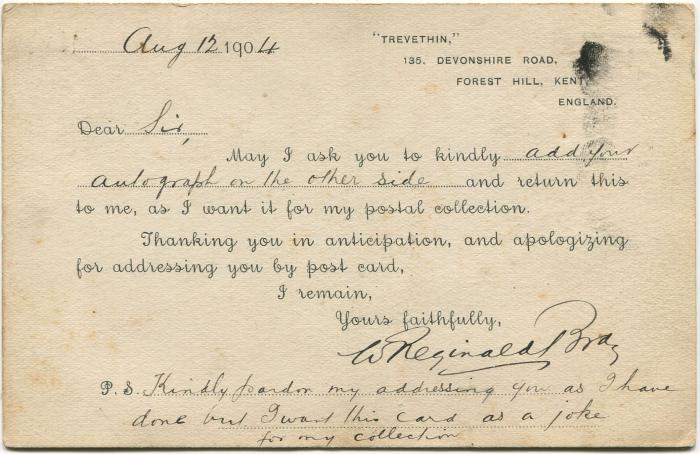 Aug 12 1904
"TREVETHIN,"
135, DEVONSHIRE ROAD,
FOREST HILL, KENT,
ENGLAND.
Dear Sir,
May I ask you to kindly add your
autograph on the other side and return this
to me, as I want it for my postal collection.
Thanking you in anticipation, and apologizing
for addressing you by post card,
I remain,
Yours faithfully,
W Reginald Bray
P.S. Kindly pardon my addressing you as I have
done but I want this card as a joke
for my collection